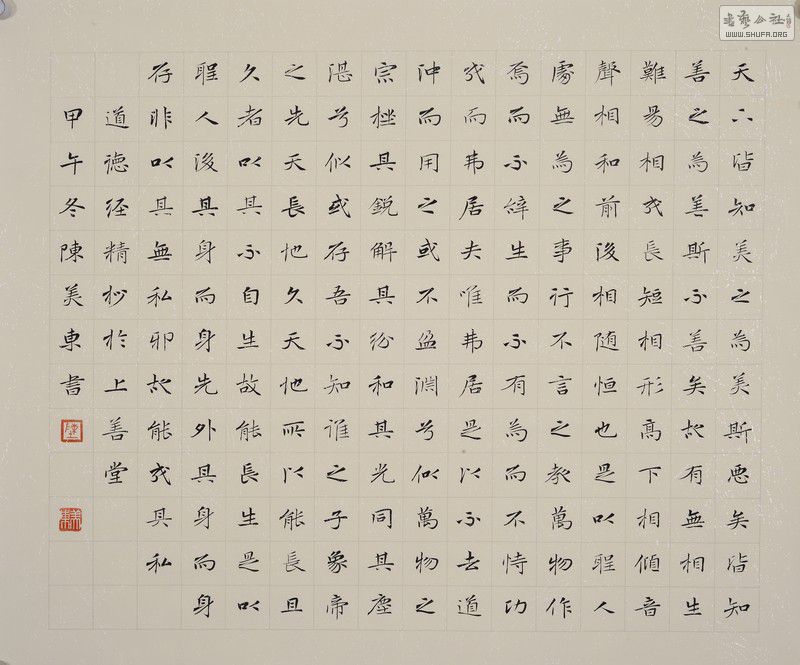 天下皆知美之為美斯悪矣皆知
善之為善斯不善矣故有無相生
難易相成長短相形高下相傾音
聲相和前後相随恒也是以聖人
處無為之事行不言之教萬物作
焉而不辭生而不有為而不恃功
成而弗居夫唯弗居是以不去道
沖而用之或不盈淵兮似萬物之
宗挫其銳解其紛和其光同其塵
湛兮似或存吾不知誰之子象帝
之先天長地久天地所以能長且
久者以其不自生故能長生是以
聖人後其身而身先外其身而身
存非以其無私邪故能成其私
道德经精抄於上善堂
甲午冬陳美東書
陳
美東
書藝公社
WWW.SHUFA.ORG